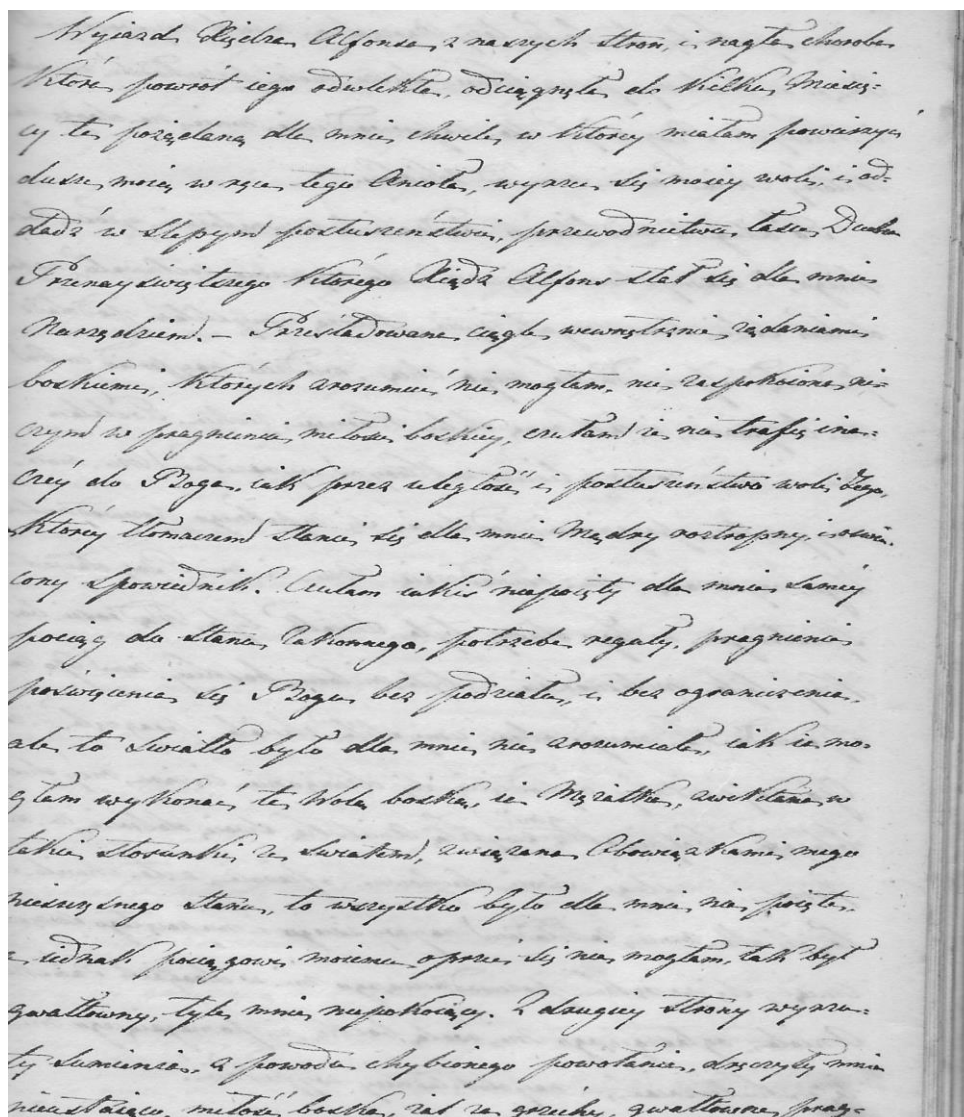 Wyiazd Xiędza Alfonsa z naszych stron, i nagła choroba
która powrót iego odwlekła, odciągnęła do kilku Miesię-
cy tę pożądaną dla mnie chwilę w którey miałam powierzyć
duszę moią w ręce tego Anioła, wyrzec się moiey woli, i od-
dadź w ślepym posłuszeństwie, przewodnictwu łaski Ducha
Przenayświętszego którego Xiądz Alfons stał się dla mnie
Narzędziem. – Prześladowana ciągle wewnętrznie żądaniami
boskiemi, których zrozumieć nie mogłam, nie zaspokoiona ni-
czym w pragnieniu miłości boskiey, czułam że nie trafię ina-
czéy do Boga, iak przez uległość i posłuszeństwo woli Jego,
którey tłomaczem stanie się dla mnie Mądry roztropny, i oświe-
cony Spowiednik. Czułam iakiś niepoięty dla mnie saméy
pociąg do stanu Zakonnego, potrzebę reguły, pragnienie
poświęcenia się Bogu bez podziału, i bez ograniczenia,
ale to światło było dla mnie nie zrozumiałe, iak ia mo-
głam wykonać tę Wolę boską, ia Mężatka, uwikłana w
takie stosunki ze światem, związana Obowiązkami mego
nieszczęsnego stanu, to wszystko było dla mnie nie poięte,
a iednak pociągowi moiemu oprzeć się nie mogłam, tak był
gwałtowny, tyle mnie niepokoiący. Z drugiey strony wyrzu-
ty sumienia, z powodu chybionego powołania, dręczyły mnie
nieustaiąco, miłość boska, żal za grzechy, gwałtowne prag-